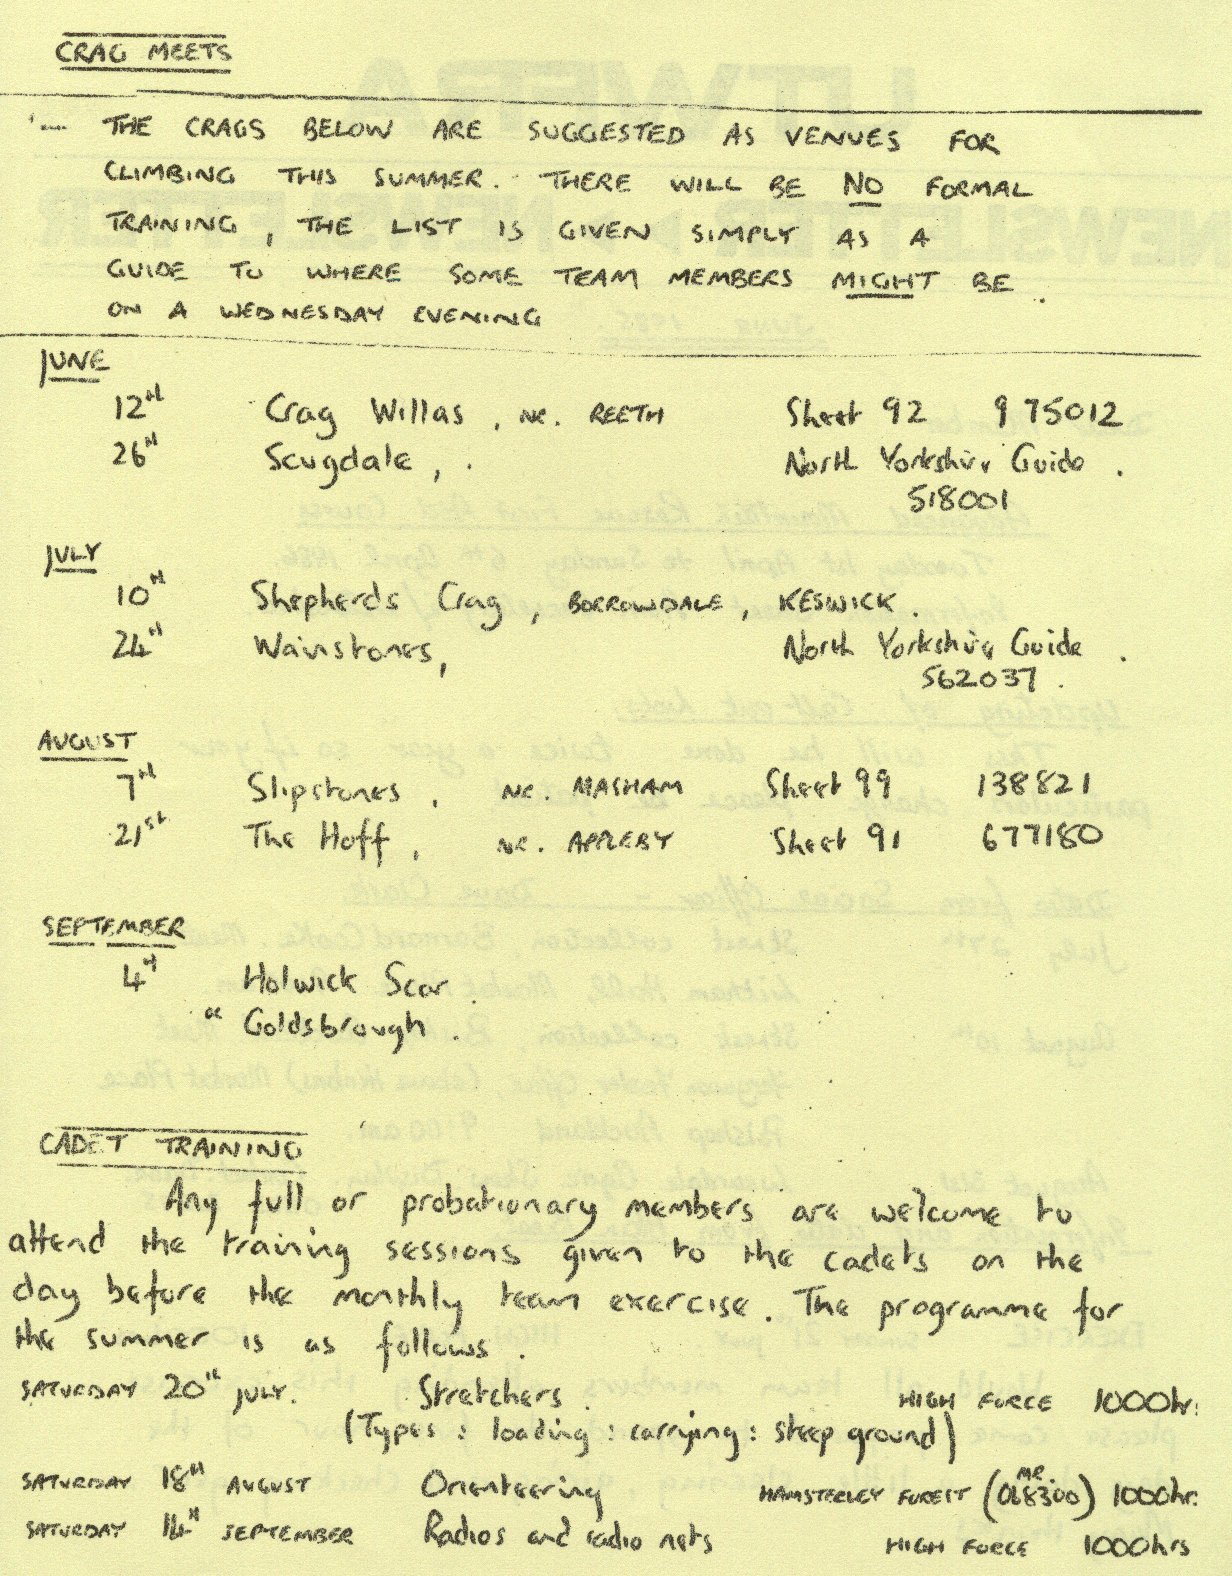 CRAG MEETS
THE CRAGS BELOW ARE SUGGESTED AS VENUES FOR
CLIMBING THIS SUMMER. THERE WILL BE NO FORMAL
TRAINING, THE LIST IS GIVEN SIMPLY AS A
GUIDE TO WHERE SOME TEAM MEMBERS MIGHT BE
ON A WEDNESDAY EVENING.
JUNE
12th Crag Willas, NR. REETH Sheet 92 975012
26th Scugdale, North Yorkshire Guide.
518001
JULY
10th Shepherds Crag, BORROWDALE, KESWICK.
24th Wainstones, North Yorkshire Guide.
562037.
AUGUST
7th Slipstones, NR. MASHAM Sheet 99 138821
21st The Hoff, NR. APPLEBY Sheet 91 677180
SEPTEMBER
4th Holwick Scar.
or Goldsbrough.
CADET TRAINING
Any full or probationary members are welcome to
attend the training sessions given to the cadets on the
day before the monthly team exercise. The programme for
the summer is as follows.
SATURDAY 20th JULY. Stretchers. HIGH FORCE 1000hr.
(Types : loading : carrying : steep ground)
SATURDAY 18th AUGUST Orienteering HAMSTERLEY FOREST (MR. 068300) 1000hr.
SATURDAY 14th SEPTEMBER Radios and radio nets HIGH FORCE 1000hrs